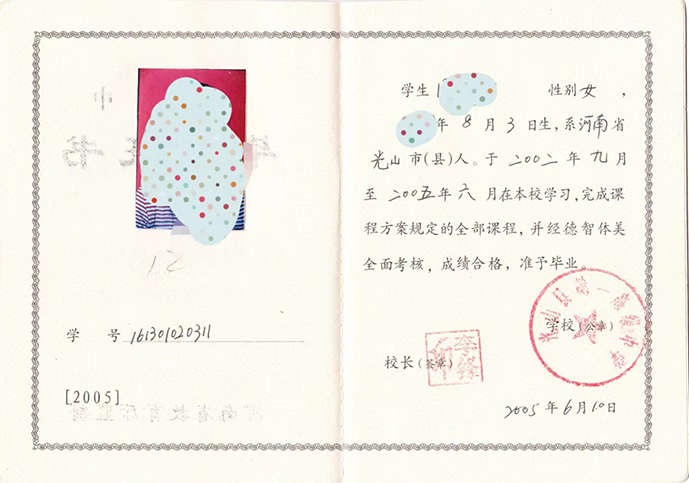 学 号 161301020311
[2005]
学生 性别 女 ，
年 8 月 3 日生，系河南省
光山 市(县)人。于 二00二 年 九 月
至 二00五 年 六 月在本校学习，完成课
程方案规定的全部课程，并经德智体美
全面考核，成绩合格，准予毕业。
学校(公章)
校长(签章)
2005 年 6 月 10 日